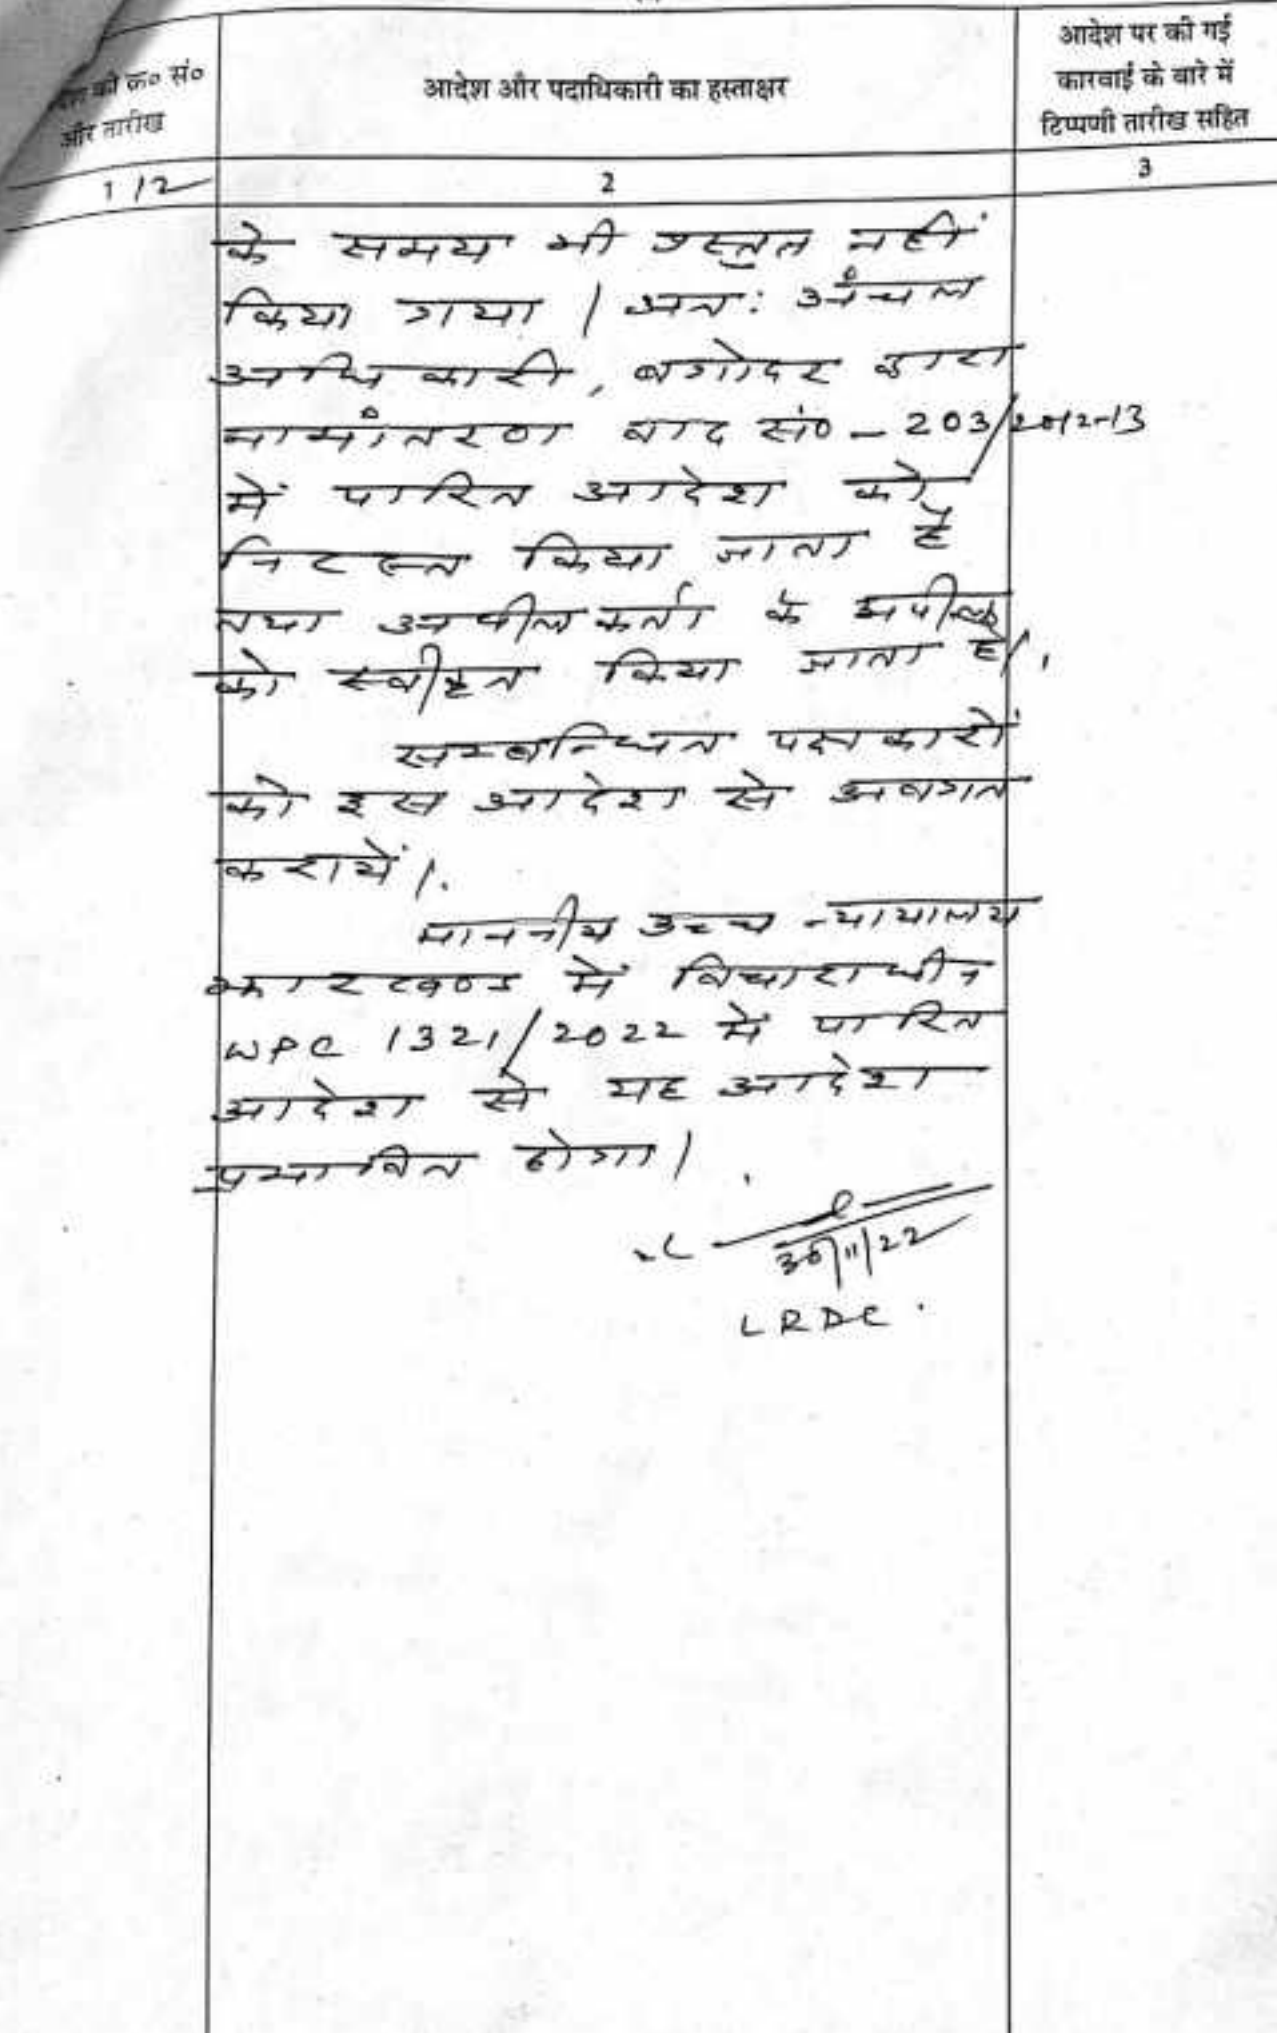 की क्र० सं०
और तारीख
आदेश और पदाधिकारी का हस्ताक्षर
आदेश पर की गई
कारवाई के बारे में
टिप्पणी तारीख सहित
1 12
2
3
के समय भी प्रस्तुत नहीं
किया गया । अतः अंचल
अधिकारी, बगोदर द्वारा
नामांतरण वाद सं० - 203/2012-13
में पारित आदेश को
निरस्त किया जाता है
तथा अपीलकर्ता के अपील
को स्वीकृत किया जाता है।
सम्बन्धित पक्षकारों
को इस आदेश से अवगत
करायें।
माननीय उच्च न्यायालय
झारखण्ड में विचाराधीन
WPC 1321/2022 में पारित
आदेश से यह आदेश
प्रभावित होगा।
30/11/22
LRDC.